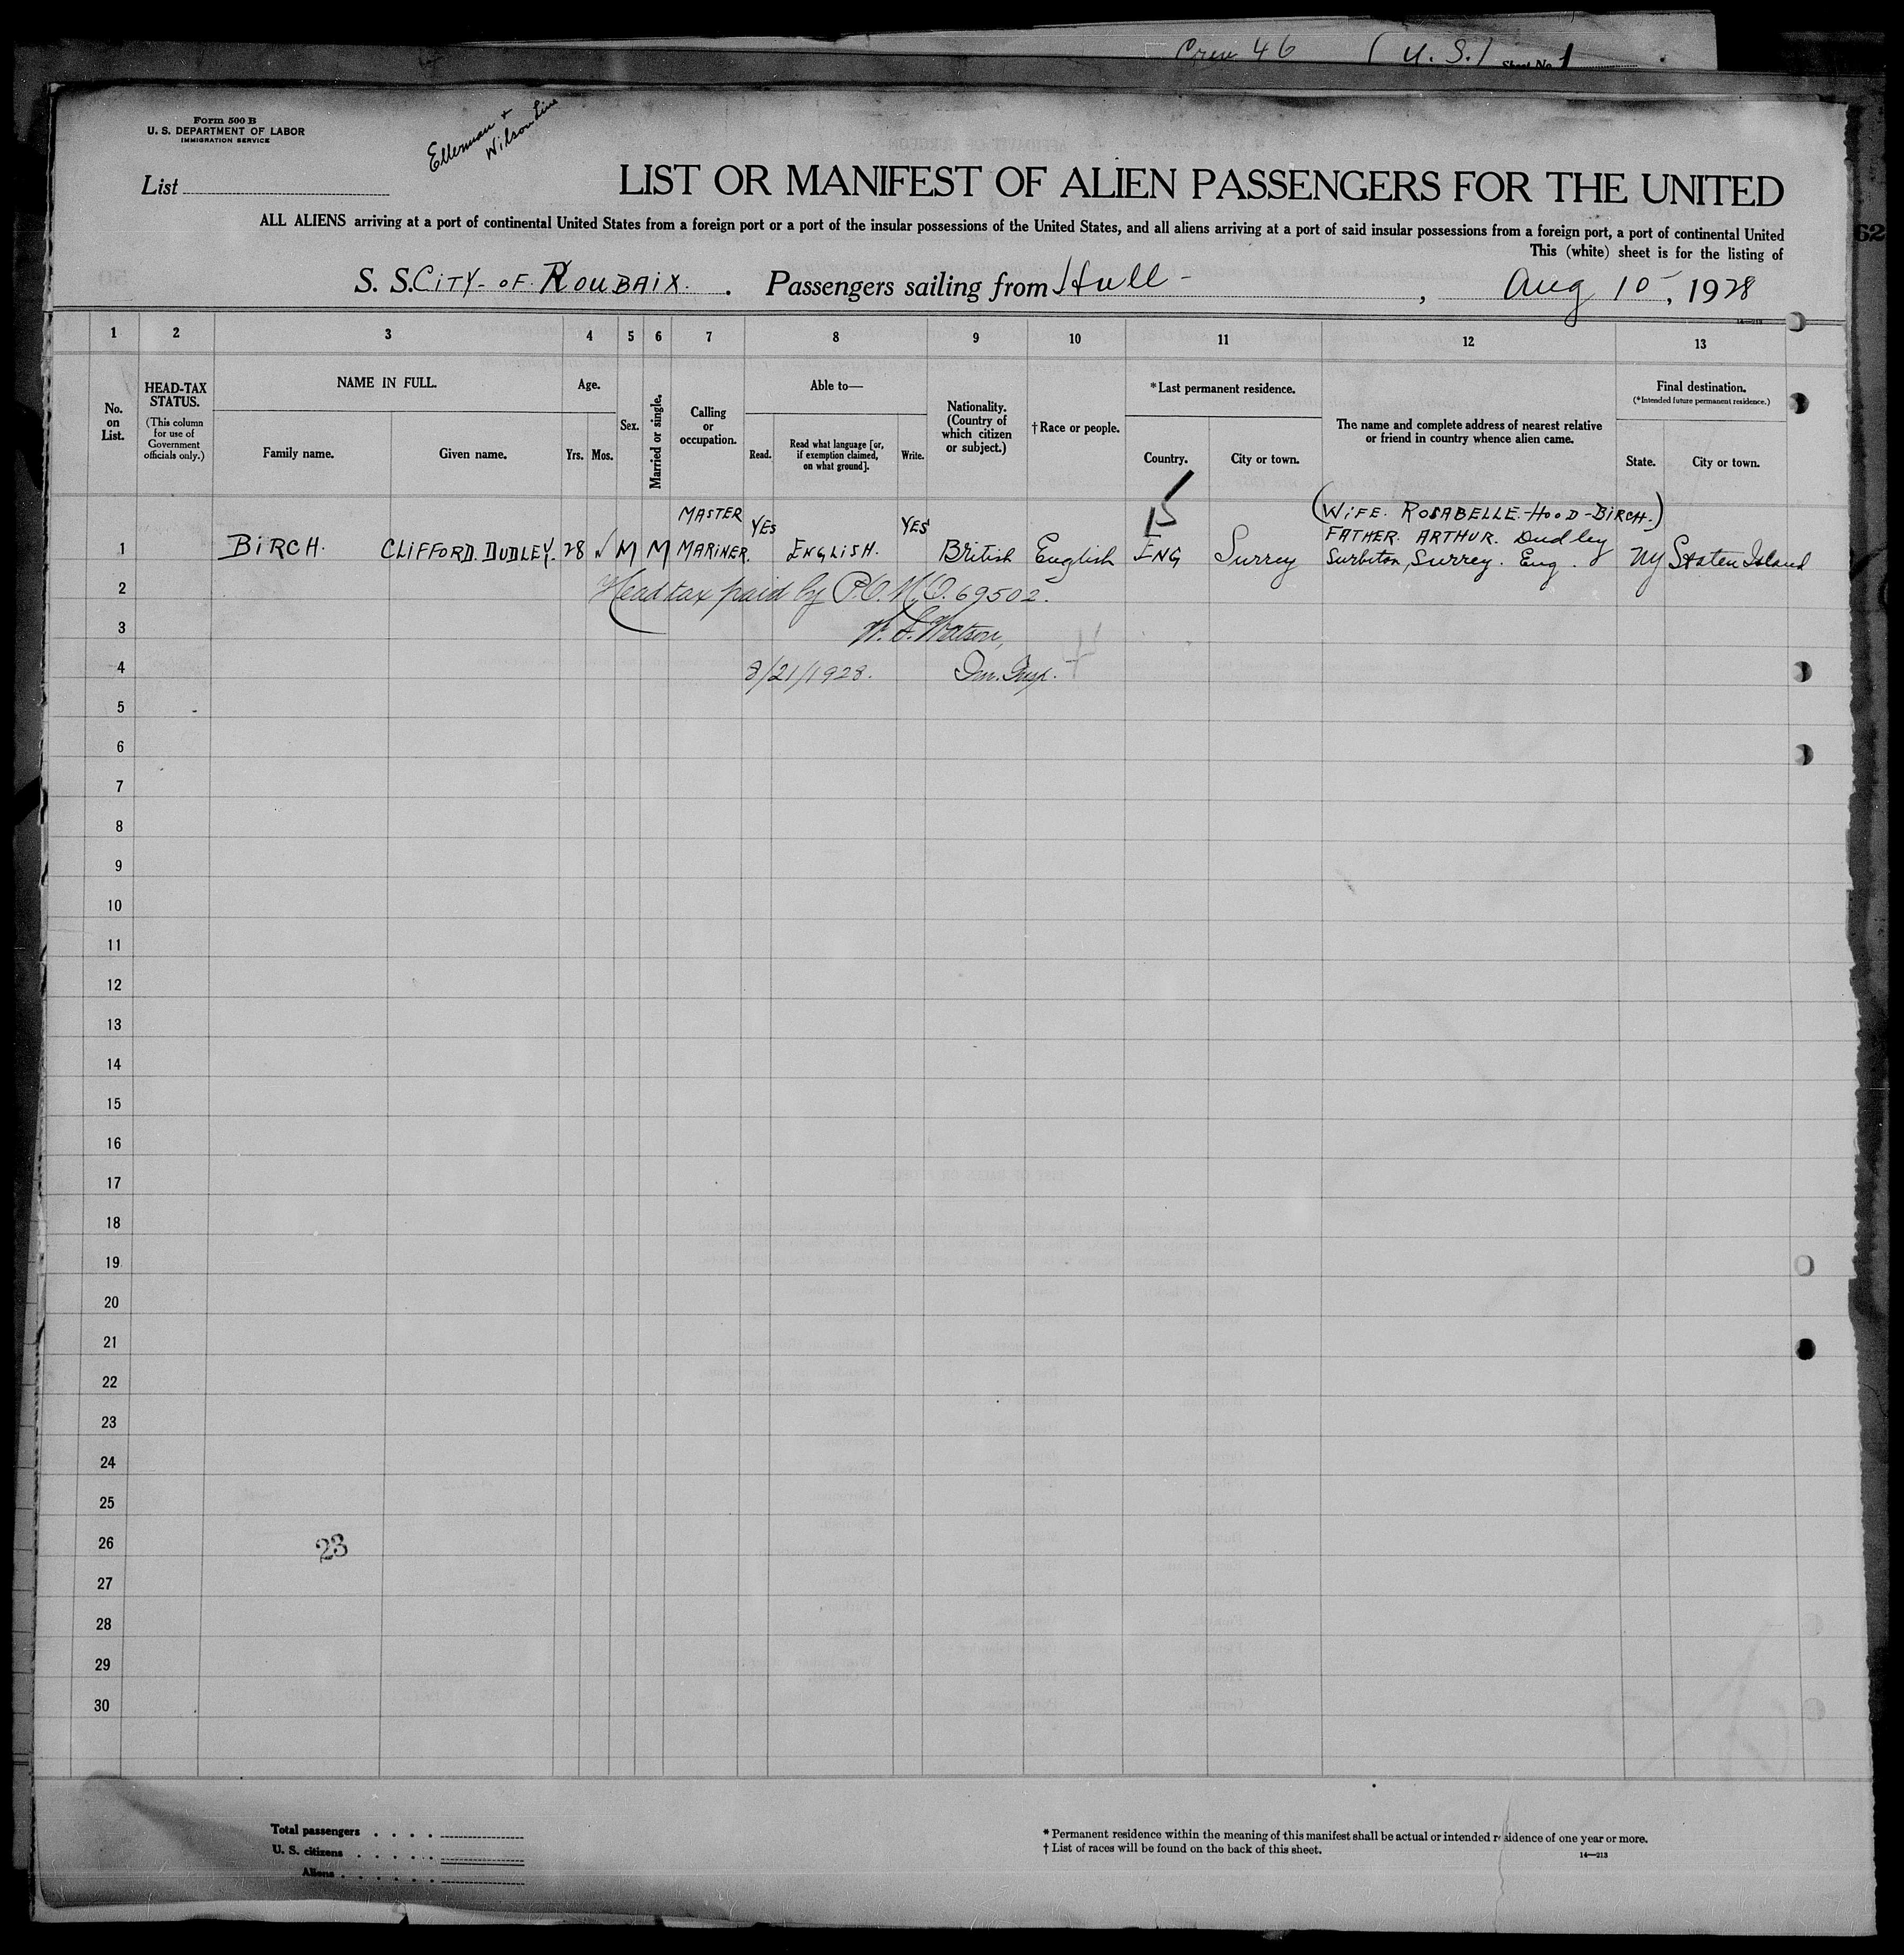 Crew 46 (U.S.) Sheet No. 1
Form 500 B
U. S. DEPARTMENT OF LABOR
IMMIGRATION SERVICE
Ellerman &
Wilson Line
List
LIST OR MANIFEST OF ALIEN PASSENGERS FOR THE UNITED
ALL ALIENS arriving at a port of continental United States from a foreign port or a port of the insular possessions of the United States, and all aliens arriving at a port of said insular possessions from a foreign port, a port of continental United
This (white) sheet is for the listing of
62
S. S. CITY-OF ROUBAIX. Passengers sailing from Hull - , Aug 10, 1928
14—213
1 2 3 4 5 6 7 8 9 10 11 12 13
No. on List.
HEAD-TAX STATUS.
(This column for use of Government officials only.)
NAME IN FULL.
Family name. Given name.
Age.
Yrs. Mos.
Sex.
Married or single.
Calling or occupation.
Able to—
Read. Read what language [or, if exemption claimed, on what ground]. Write.
Nationality. (Country of which citizen or subject.)
†Race or people.
*Last permanent residence.
Country. City or town.
The name and complete address of nearest relative or friend in country whence alien came.
Final destination.
(*Intended future permanent residence.)
State. City or town.
(WIFE. ROSABELLE-HOOD-BIRCH.)
1 BIRCH. CLIFFORD. DUDLEY. 28 M M MASTER MARINER. YES ENGLISH. YES British English ENG Surrey FATHER. ARTHUR. Dudley Surbiton, Surrey. Eng. NY Staten Island
2 Head tax paid by P.O.M.O. 69502.
3 W. F. Watson,
4 8/21/1928. Im. Insp.
5
6
7
8
9
10
11
12
13
14
15
16
17
18
19
20
21
22
23
24
25
26 23
27
28
29
30
Total passengers
U. S. citizens
Aliens
* Permanent residence within the meaning of this manifest shall be actual or intended residence of one year or more.
† List of races will be found on the back of this sheet.
14—213